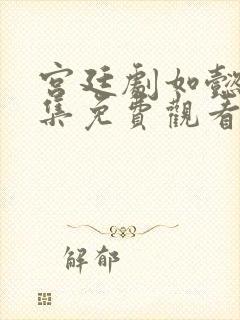 宮廷劇如懿
集免費觀看
解郁